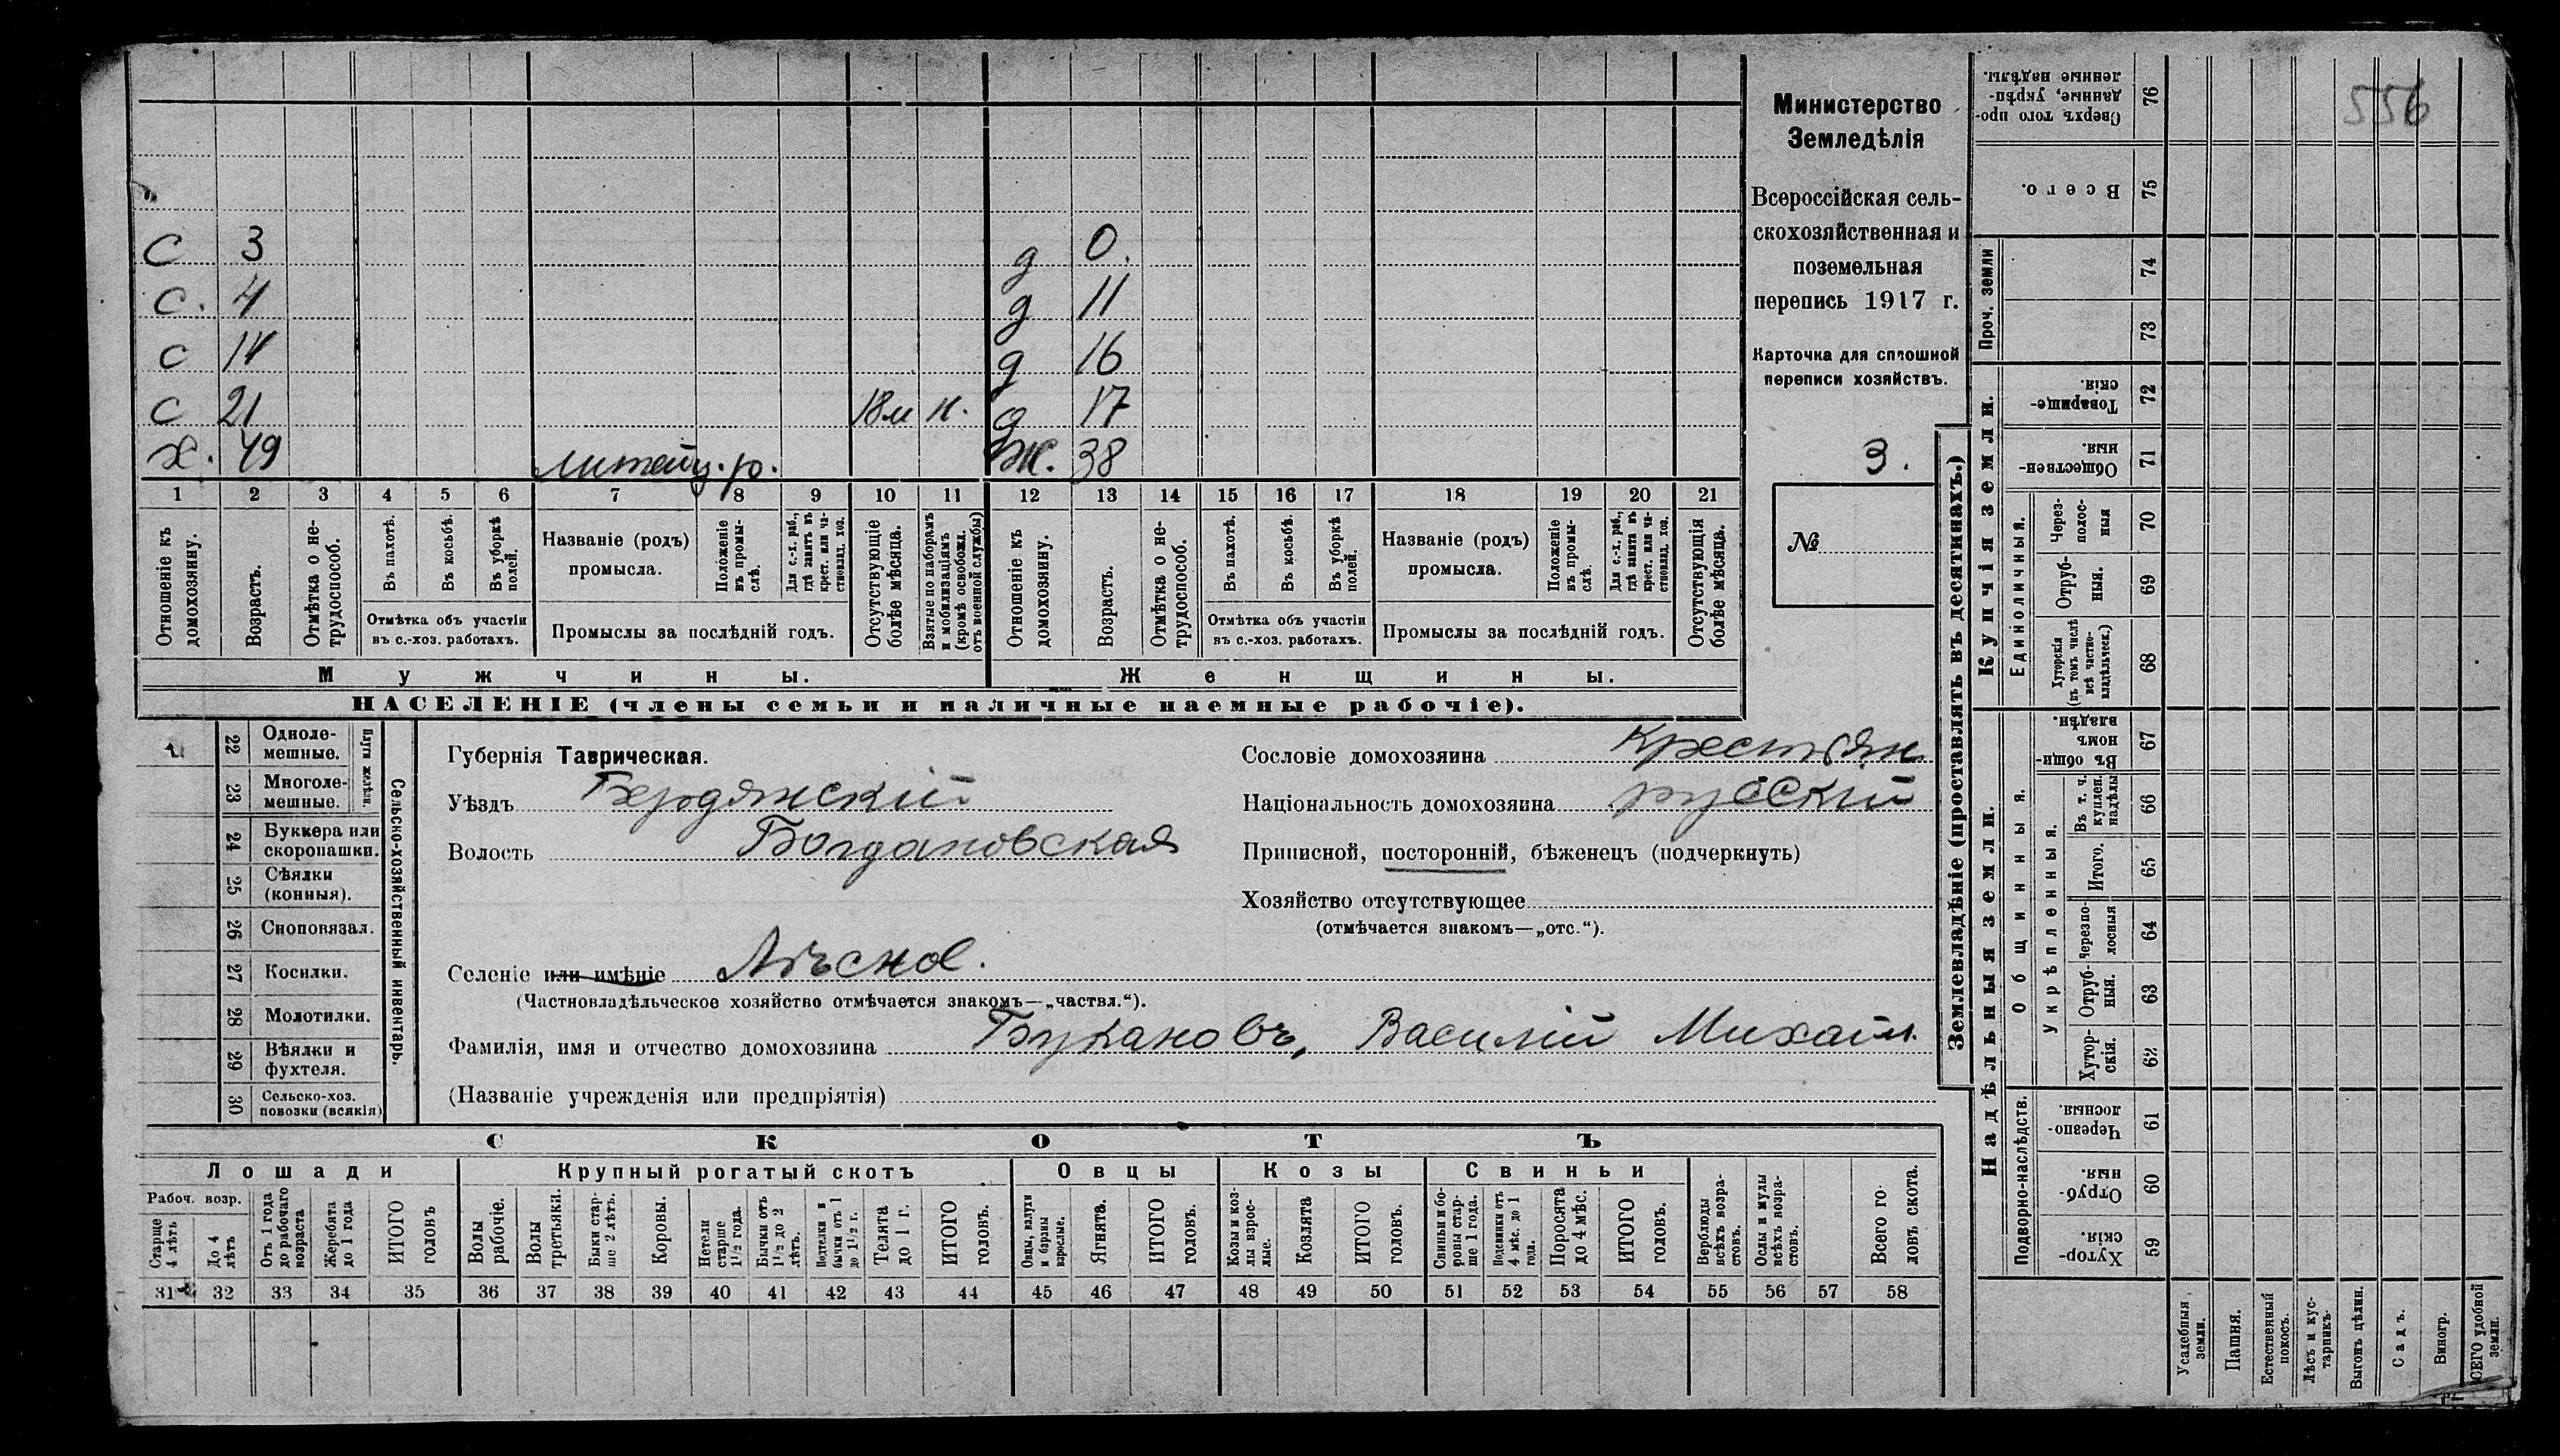 556
Министерство
Земледѣлія
Всероссійская сель-
скохозяйственная и
поземельная
перепись 1917 г.
Карточка для сплошной
переписи хозяйствъ.
3.
№
С 3 д 0.
С. 4 д 11
С 14 д 16
С 21 18м н. д 17
Х. 49 литейщ. р. Ж. 38
1 2 3 4 5 6 7 8 9 10 11 12 13 14 15 16 17 18 19 20 21
Отношеніе къ домохозяину.
Возрастъ.
Отмѣтка о не-трудоспособ.
Въ пахотѣ.
Въ косьбѣ.
Въ уборкѣ полей.
Отмѣтка объ участіи
въ с.-хоз. работахъ.
Названіе (родъ)
промысла.
Положеніе въ промы-слѣ.
Для с.-х. раб., гдѣ занятъ въ крест. или ча-стновлад. хоз.
Промыслы за послѣдній годъ.
Отсутствующіе болѣе мѣсяца.
Взятые по наборамъ и мобилизаціямъ (кромѣ освобожд. отъ военной службы)
Отношеніе къ домохозяину.
Возрастъ.
Отмѣтка о не-трудоспособ.
Въ пахотѣ.
Въ косьбѣ.
Въ уборкѣ полей.
Отмѣтка объ участіи
въ с.-хоз. работахъ.
Названіе (родъ)
промысла.
Положеніе въ промы-слѣ.
Для с.-х. раб., гдѣ занята въ крест. или ча-стновлад. хоз.
Промыслы за послѣдній годъ.
Отсутствующія болѣе мѣсяца.
Мужчины. Женщины.
НАСЕЛЕНІЕ (члены семьи и наличные наемные рабочіе).
22 Одноле-мешные.
23 Многоле-мешные.
Плуги желѣзн.
24 Буккера или скоропашки.
25 Сѣялки (конныя).
26 Сноповязал.
27 Косилки.
28 Молотилки.
29 Вѣялки и фухтеля.
30 Сельско-хоз. повозки (всякія)
Сельско-хозяйственный инвентарь.
Губернія Таврическая.
Уѣздъ Бердянскій
Волость Богдановская
Сословіе домохозяина Крестьян
Національность домохозяина русскій
Приписной, посторонній, бѣженецъ (подчеркнуть)
Хозяйство отсутствующее
(отмѣчается знакомъ—„отс.“).
Селеніе или имѣніе
(Частновладѣльческое хозяйство отмѣчается знакомъ—„частвл.“).
Фамилія, имя и отчество домохозяина Букановъ, Василій Михайл.
(Названіе учрежденія или предпріятія)
СКОТЪ
Лошади Крупный рогатый скотъ Овцы Козы Свиньи
Рабоч. возр.
Старше 4 лѣтъ
До 4 лѣтъ
Отъ 1 года до рабочаго возраста
Жеребята до 1 года
ИТОГО головъ
Волы рабочіе.
Волы третьяки.
Быки стар-ше 2 лѣтъ.
Коровы.
Нетели старше 1 1/2 года.
Бычки отъ 1 1/2 до 2 лѣтъ.
Подтелки и бычки отъ 1 до 1 1/2 г.
Телята до 1 г.
ИТОГО головъ.
Овцы, валухи и бараны взрослые.
Ягнята.
ИТОГО головъ.
Козы и коз-лы взрос-лые.
Козлята
ИТОГО головъ.
Свиньи и бо-ровы стар-ше 1 года.
Подсвинки отъ 4 мѣс. до 1 года.
Поросята до 4 мѣс.
ИТОГО головъ.
Верблюды всѣхъ возра-стовъ.
Ослы и мулы всѣхъ возра-стовъ.
Всего го-ловъ скота.
31 32 33 34 35 36 37 38 39 40 41 42 43 44 45 46 47 48 49 50 51 52 53 54 55 56 57 58
Землевладѣніе (проставлять въ десятинахъ.)
Надѣльныя земли. Купчія земли. Проч. земли
Подворно-наслѣдств.
Общинныя.
Укрѣпленныя.
Единоличныя.
Сверхъ того про-данные, укрѣп-ленные надѣлы. 76
Всего. 75
74
73
Товарище-скія. 72
Обществен-ныя 71
Через-полос-ныя 70
Отруб-ныя. 69
Хуторскія (въ томъ числѣ всѣ частно-владѣльческ.) 68
Въ общин-номъ владѣн. 67
Въ т. ч. куплен. надѣлы 66
Итого. 65
Черезпо-лосныя 64
Отруб-ныя. 63
Хутор-скія. 62
Черезпо-лосныя. 61
Отруб-ныя. 60
Хутор-скія. 59
Усадебныя земли.
Пашня.
Естественный покосъ.
Лѣсъ и кус-тарникъ.
Выгонъ цѣлин.
Садъ.
Виногр.
удобной земли.